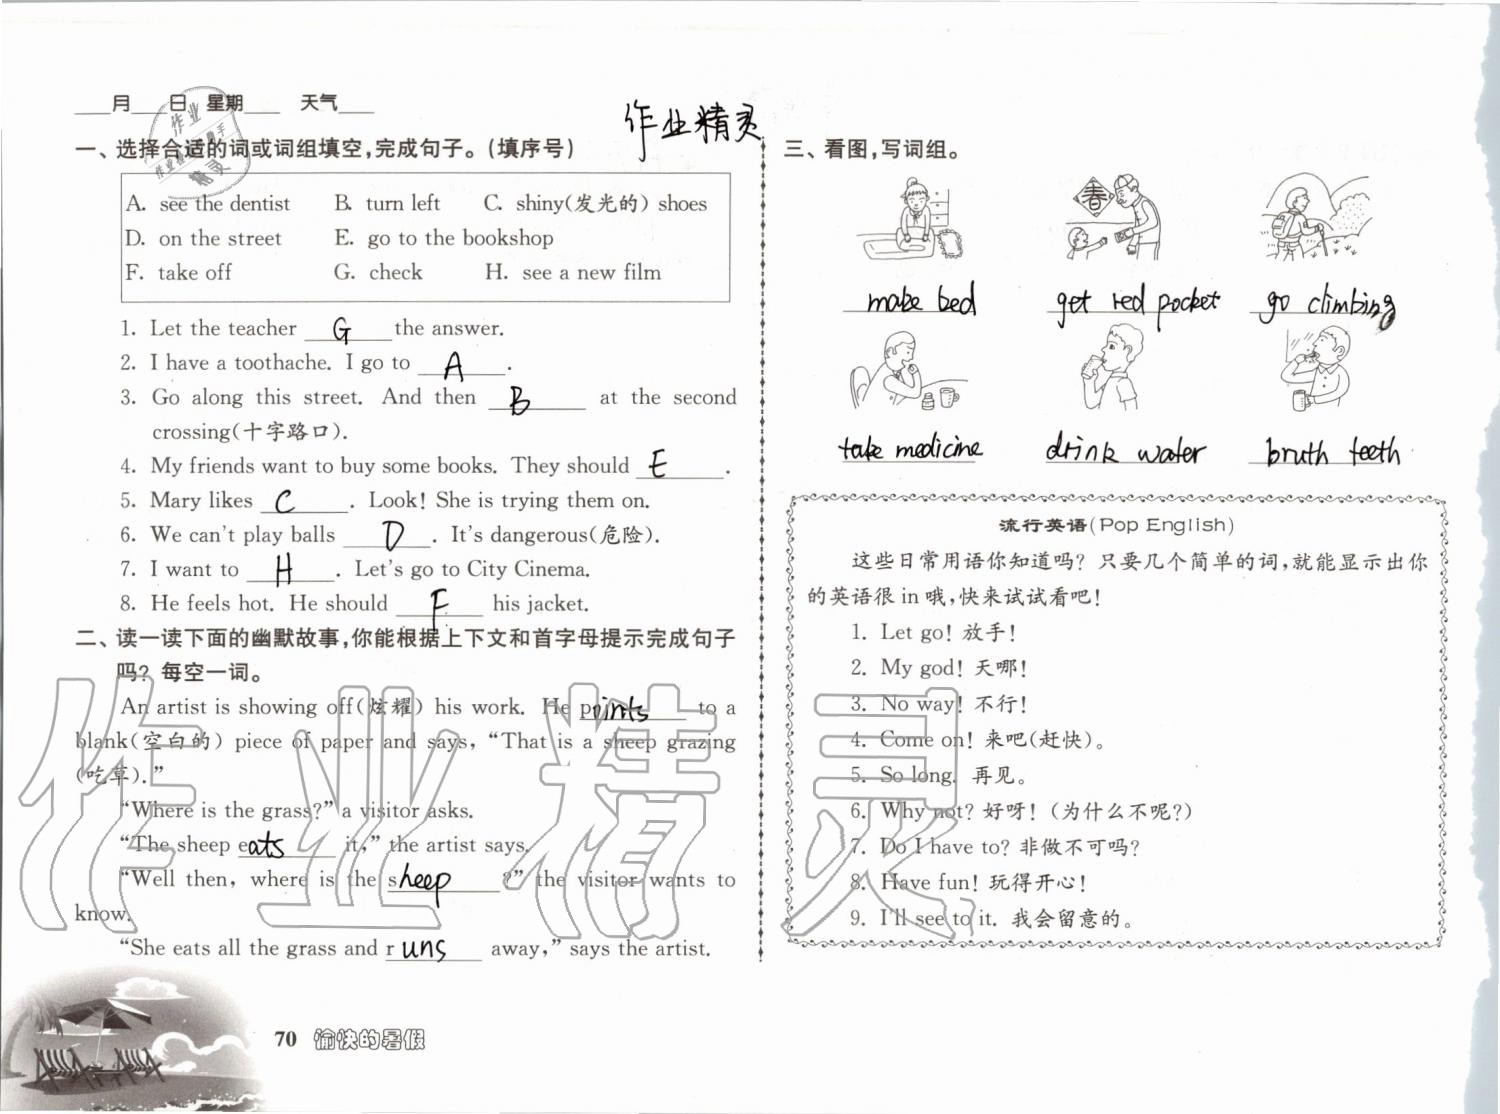 ___月___日 星期___ 天气___
作业精灵
一、选择合适的词或词组填空,完成句子。(填序号)
A. see the dentist B. turn left C. shiny(发光的) shoes
D. on the street E. go to the bookshop
F. take off G. check H. see a new film
1. Let the teacher G the answer.
2. I have a toothache. I go to A.
3. Go along this street. And then B at the second
crossing(十字路口).
4. My friends want to buy some books. They should E.
5. Mary likes C. Look! She is trying them on.
6. We can't play balls D. It's dangerous(危险).
7. I want to H. Let's go to City Cinema.
8. He feels hot. He should F his jacket.
二、读一读下面的幽默故事,你能根据上下文和首字母提示完成句子
吗? 每空一词。
An artist is showing off(炫耀) his work. He points to a
blank(空白的) piece of paper and says, “That is a sheep grazing
(吃草).”
“Where is the grass?” a visitor asks.
“The sheep eats it,” the artist says.
“Well then, where is the sheep?” the visitor wants to
know.
“She eats all the grass and runs away,” says the artist.
70 愉快的暑假
三、看图,写词组。
春
make bed get red pocket go climbing
take medicine drink water bruth teeth
流行英语(Pop English)
这些日常用语你知道吗? 只要几个简单的词,就能显示出你
的英语很 in 哦,快来试试看吧!
1. Let go! 放手!
2. My god! 天哪!
3. No way! 不行!
4. Come on! 来吧(赶快)。
5. So long. 再见。
6. Why not? 好呀! (为什么不呢?)
7. Do I have to? 非做不可吗?
8. Have fun! 玩得开心!
9. I'll see to it. 我会留意的。
作业精灵